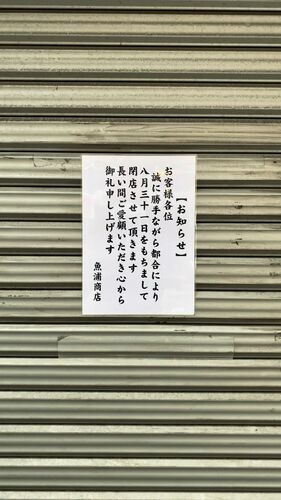 【お知らせ】
お客様各位
誠に勝手ながら都合により
八月三十一日をもちまして
閉店させて頂きます
長い間ご愛顧いただき心から
御礼申し上げます
魚浦商店